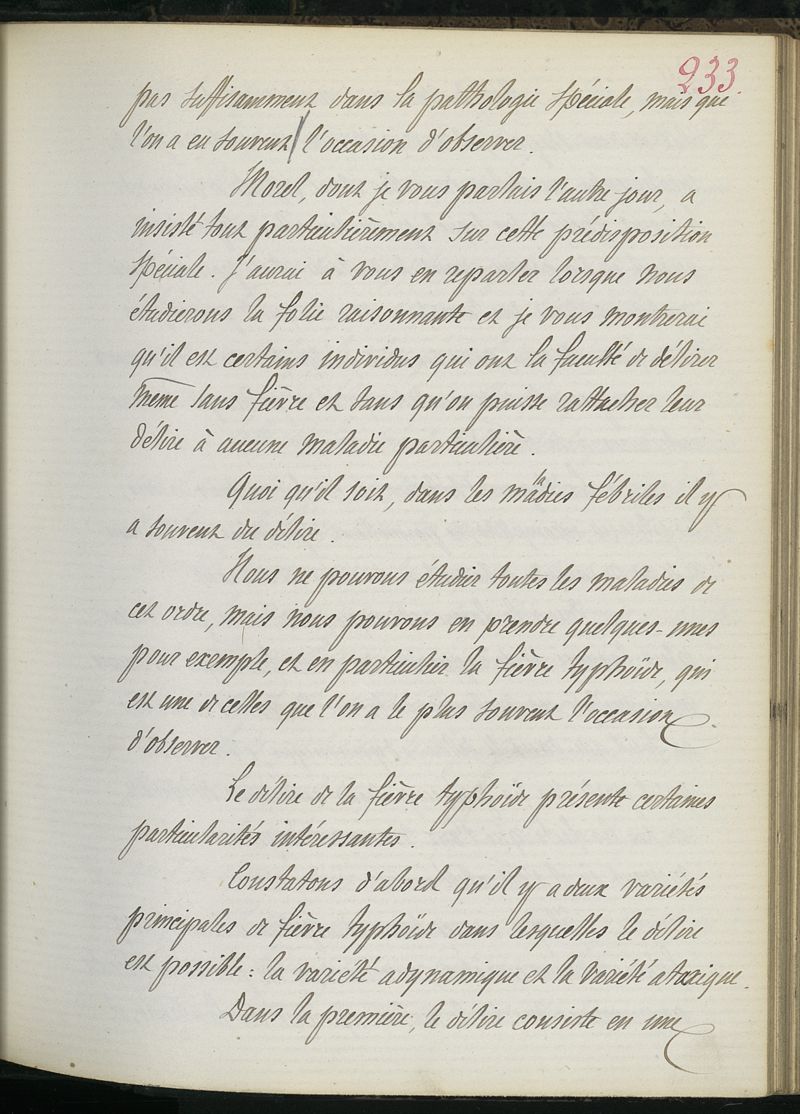 233.
pas suffisamment dans la pathologie spéciale, mais que
l'on a eu souvent l'occasion d'observer.
Morel, dont je vous parlais l'autre jour, a
insisté tout particulièrement sur cette prédisposition
spéciale. J'aurai à vous en reparler lorsque nous
étudierons la folie raisonnante et je vous montrerai
qu'il est certains individus qui ont la faculté de délirer
même sans fièvre et sans qu'on puisse rattacher leur
délire à aucune maladie particulière.
Quoi qu'il soit, dans les maladies fébriles il y
a souvent du délire.
Nous ne pouvons étudier toutes les maladies de
cet ordre, mais nous pouvons en prendre quelques-unes
pour exemple, et en particulier la fièvre typhoïde, qui
est une de celles que l'on a le plus souvent l'occasion
d'observer.
Le délire de la fièvre typhoïde présente certaines
particularités intéressantes.
Constatons d'abord qu'il y a deux variétés
principales de fièvre typhoïde dans lesquelles le délire
est possible : la variété adynamique et la variété ataxique.
Dans la première, le délire consiste en une